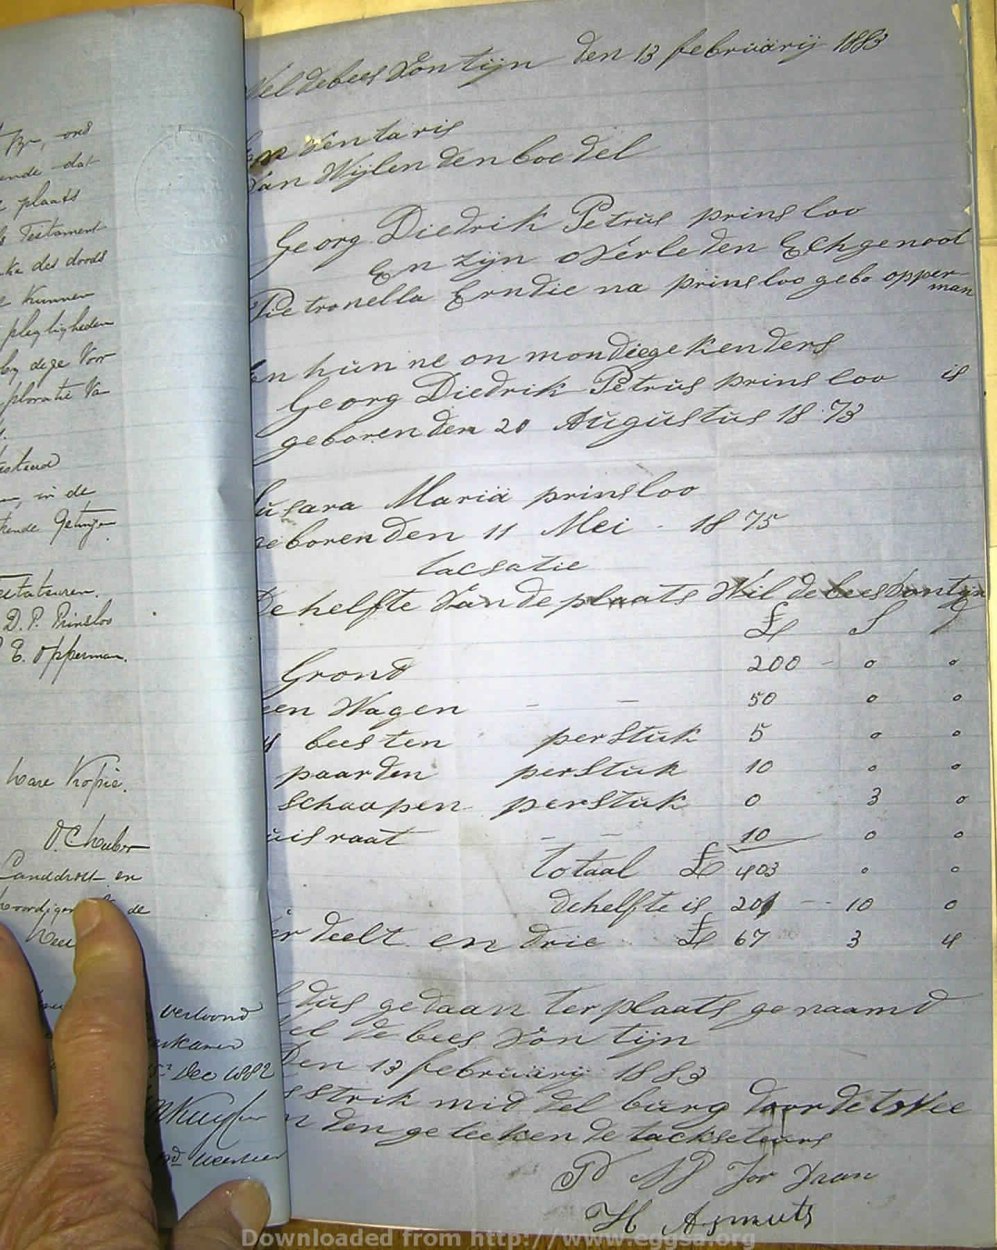 ons
ende dat
plaats
Testament
des doods
Kunnen
plegtigheden
by deze Voor
in de
Testateuren.
D. P. Prinsloo
E. Opperman.
Ware Kopie.
Landdrost en
de
verloond
Dec 1882
Wel debees Fontijn den 13 februarij 1883
In Ventaris
Van Wijlen den boe del
Georg Diedrik Petrus prinsloo
En zijn oVerleden Echgenoot
Pie tronella Erndie na prinsloo gebo opper
man
En hun ne on mondiege Kenders
Georg Diedrik Petrus prins loo is
geboren den 20 Augustus 18 73
Susara Maria prinsloo
geboren den 11 Mei - 18 75
tacsatie
De helfte Van de plaats Wil debees Vontyn
£ S
Grond 200 - 0 0
een Wagen - - 50 0 0
beesten perstuk 5 0 0
paarden perstuk 10 0 0
schaapen perstuk 0 3 0
uis raat - - 10 0 0
totaal £ 403 0 0
de helfte is 201 - - 10 0
Ver deelt en drie £ 67 3 4
dus gedaan ter plaats genaamd
Wel de bees Fon tijn
Den 13 februarij 1883
strik mid del burg door de tWee
den ge teeken de tackseteurs
P W Jor daan
H A smuts
Downloaded from http://www.eggsa.org